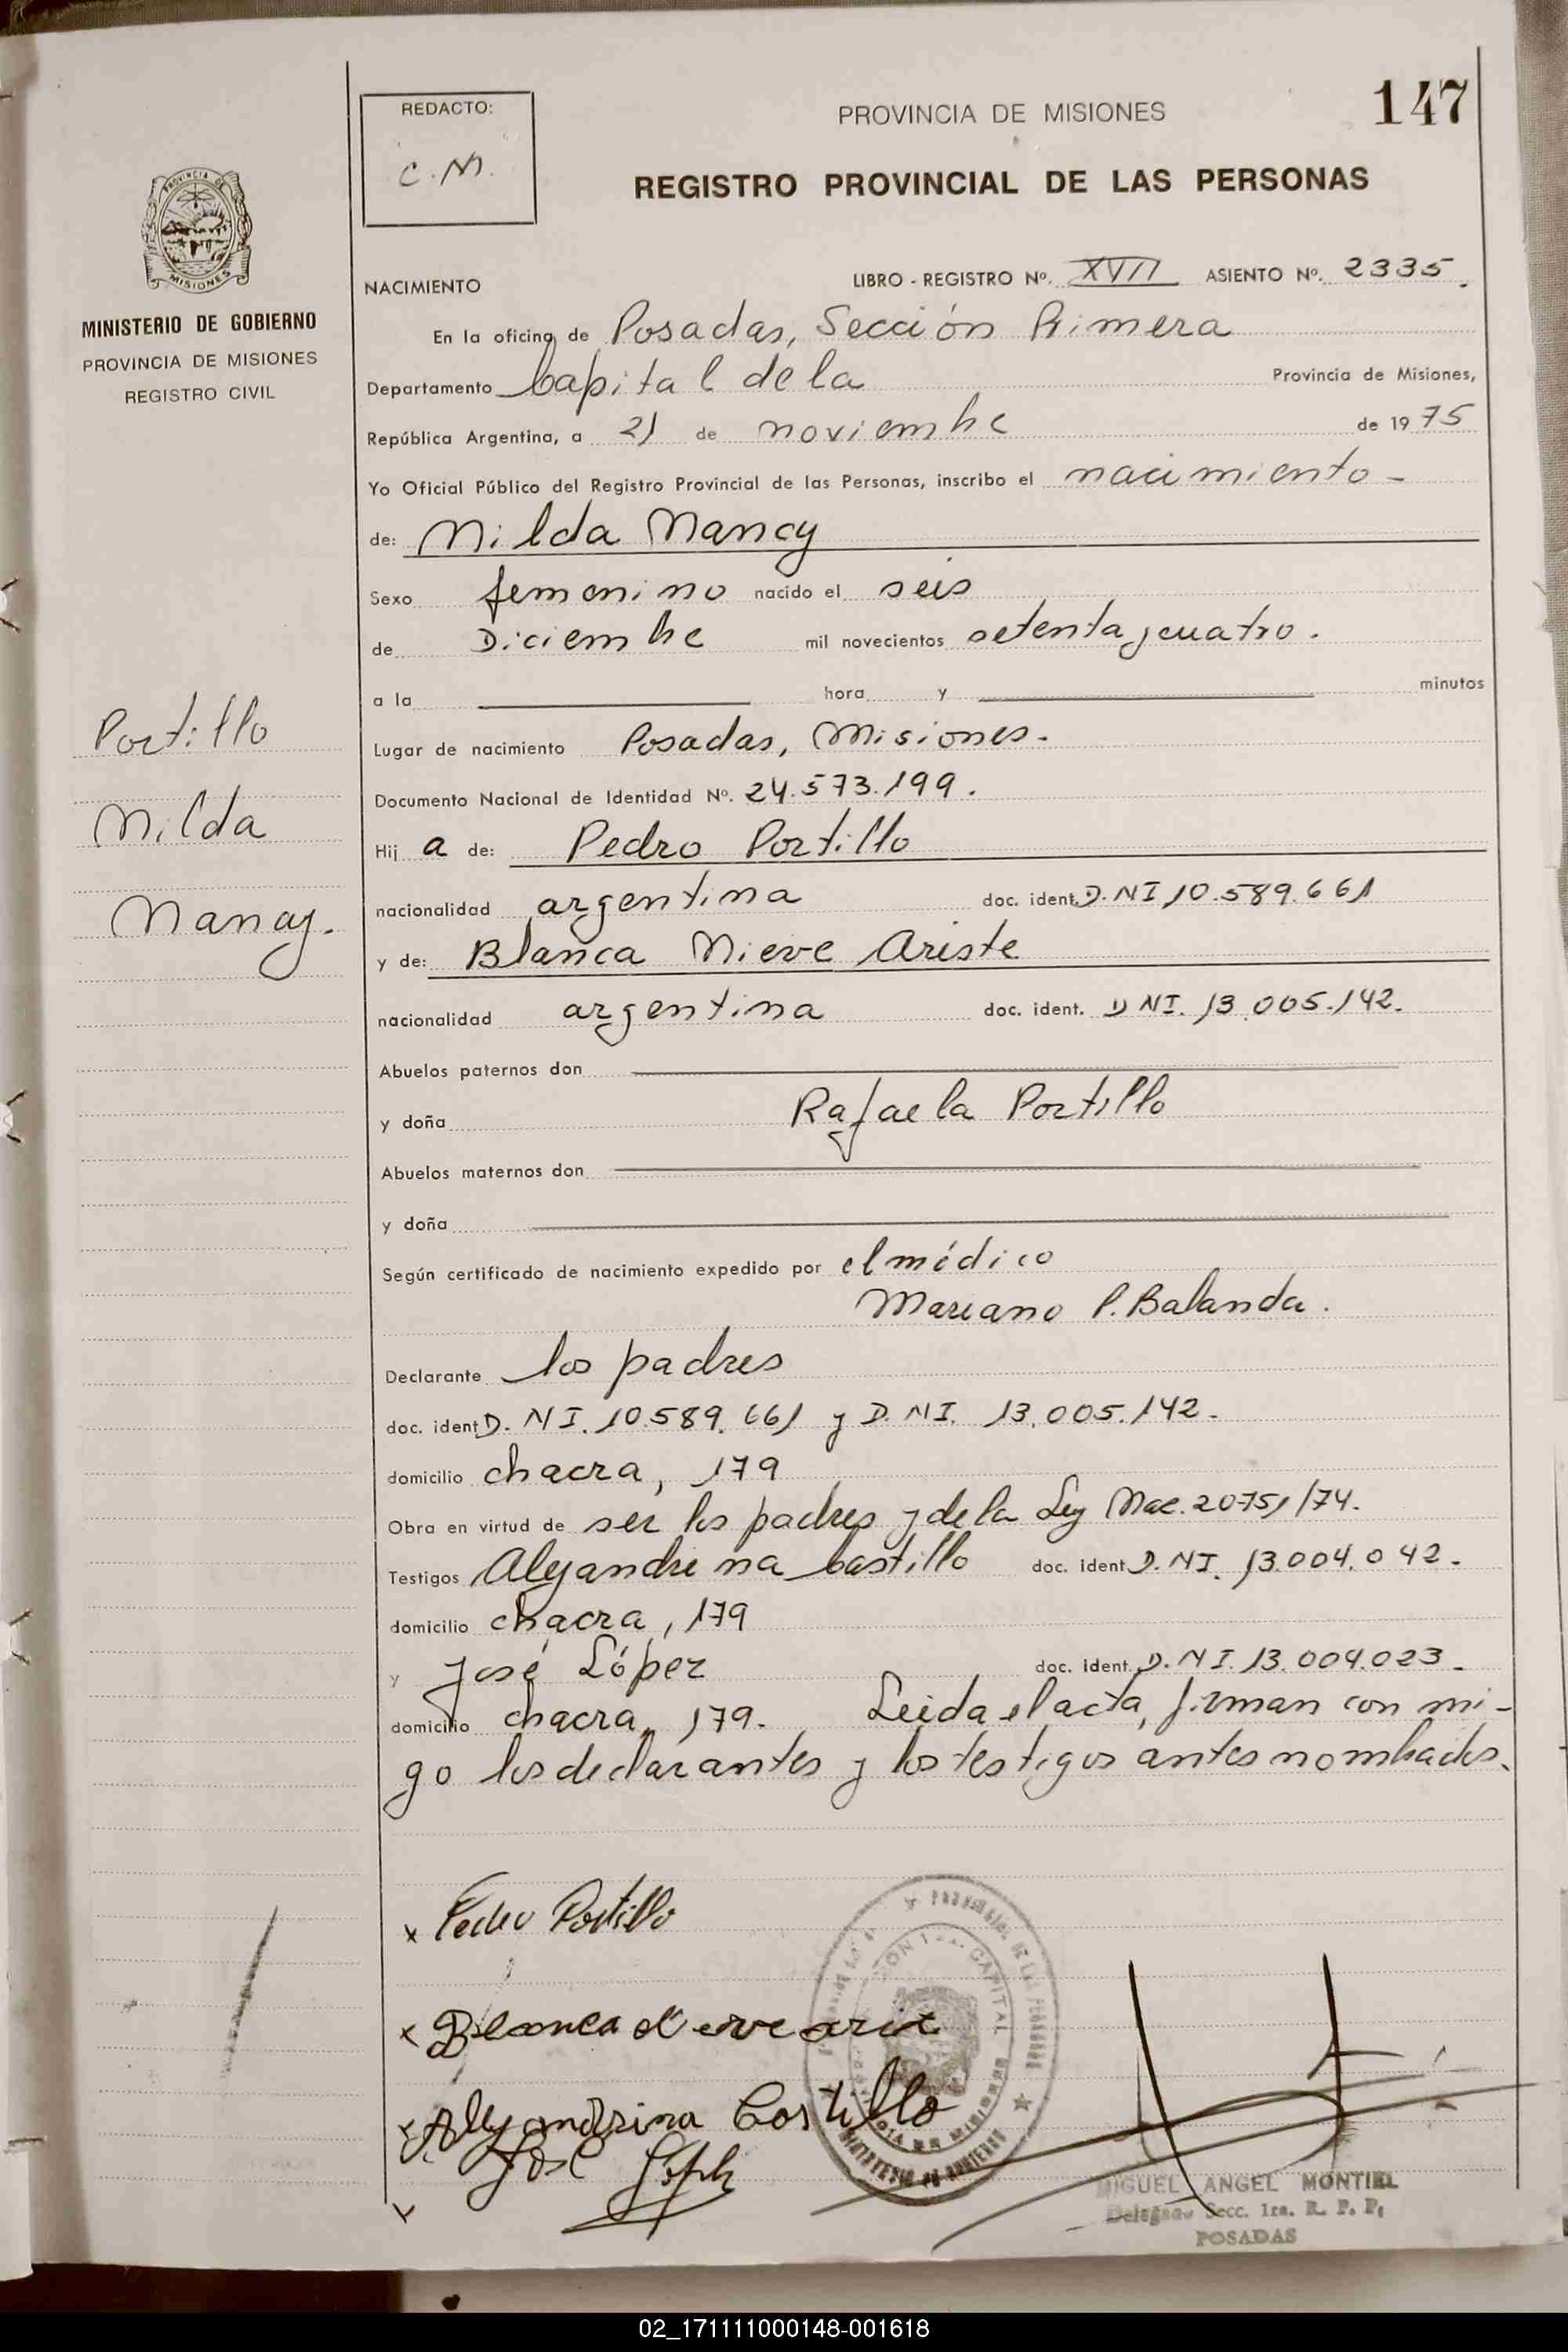 REDACTO:
C. M.
PROVINCIA DE MISIONES
147
REGISTRO PROVINCIAL DE LAS PERSONAS
PROVINCIA DE
MISIONES
MINISTERIO DE GOBIERNO
PROVINCIA DE MISIONES
REGISTRO CIVIL
NACIMIENTO LIBRO - REGISTRO Nº. XVII ASIENTO Nº. 2335.
En la oficina de Posadas, Sección Primera
Departamento Capital de la Provincia de Misiones,
República Argentina, a 21 de noviembre de 1975
Yo Oficial Público del Registro Provincial de las Personas, inscribo el nacimiento -
de: Nilda Nancy
Sexo femenino nacido el seis
de Diciembre mil novecientos setenta y cuatro.
a la hora y minutos
Lugar de nacimiento Posadas, Misiones.
Documento Nacional de Identidad Nº. 24.573.199.
Hij a de: Pedro Portillo
nacionalidad argentina doc. ident. D.NI 10.589.661
y de: Blanca Nieve Ariste
nacionalidad argentina doc. ident. DNI. 13.005.142.
Abuelos paternos don
y doña Rafaela Portillo
Abuelos maternos don
y doña
Según certificado de nacimiento expedido por el médico
Mariano P. Balanda.
Declarante los padres
doc. ident D. NI. 10.589.661 y D.NI. 13.005.142.
domicilio chacra, 179
Obra en virtud de ser los padres y de la Ley Nac. 20751/74.
Testigos Alejandrina Castillo doc. ident. D.NI. 13.004.042.
domicilio chacra, 179
y José López doc. ident. D.NI. 13.004.023.
domicilio chacra, 179. Leida el acta, firman con mi-
go los declarantes y los testigos antes nombrados.
Portillo
Nilda
Nancy.
x Pedro Portillo
x Blanca Nieve
x Alejandrina Castillo
x José
CAPITAL
MIGUEL ANGEL MONTIEL
Delegado Secc. 1ra. R. P. P.
POSADAS
02_171111000148-001618